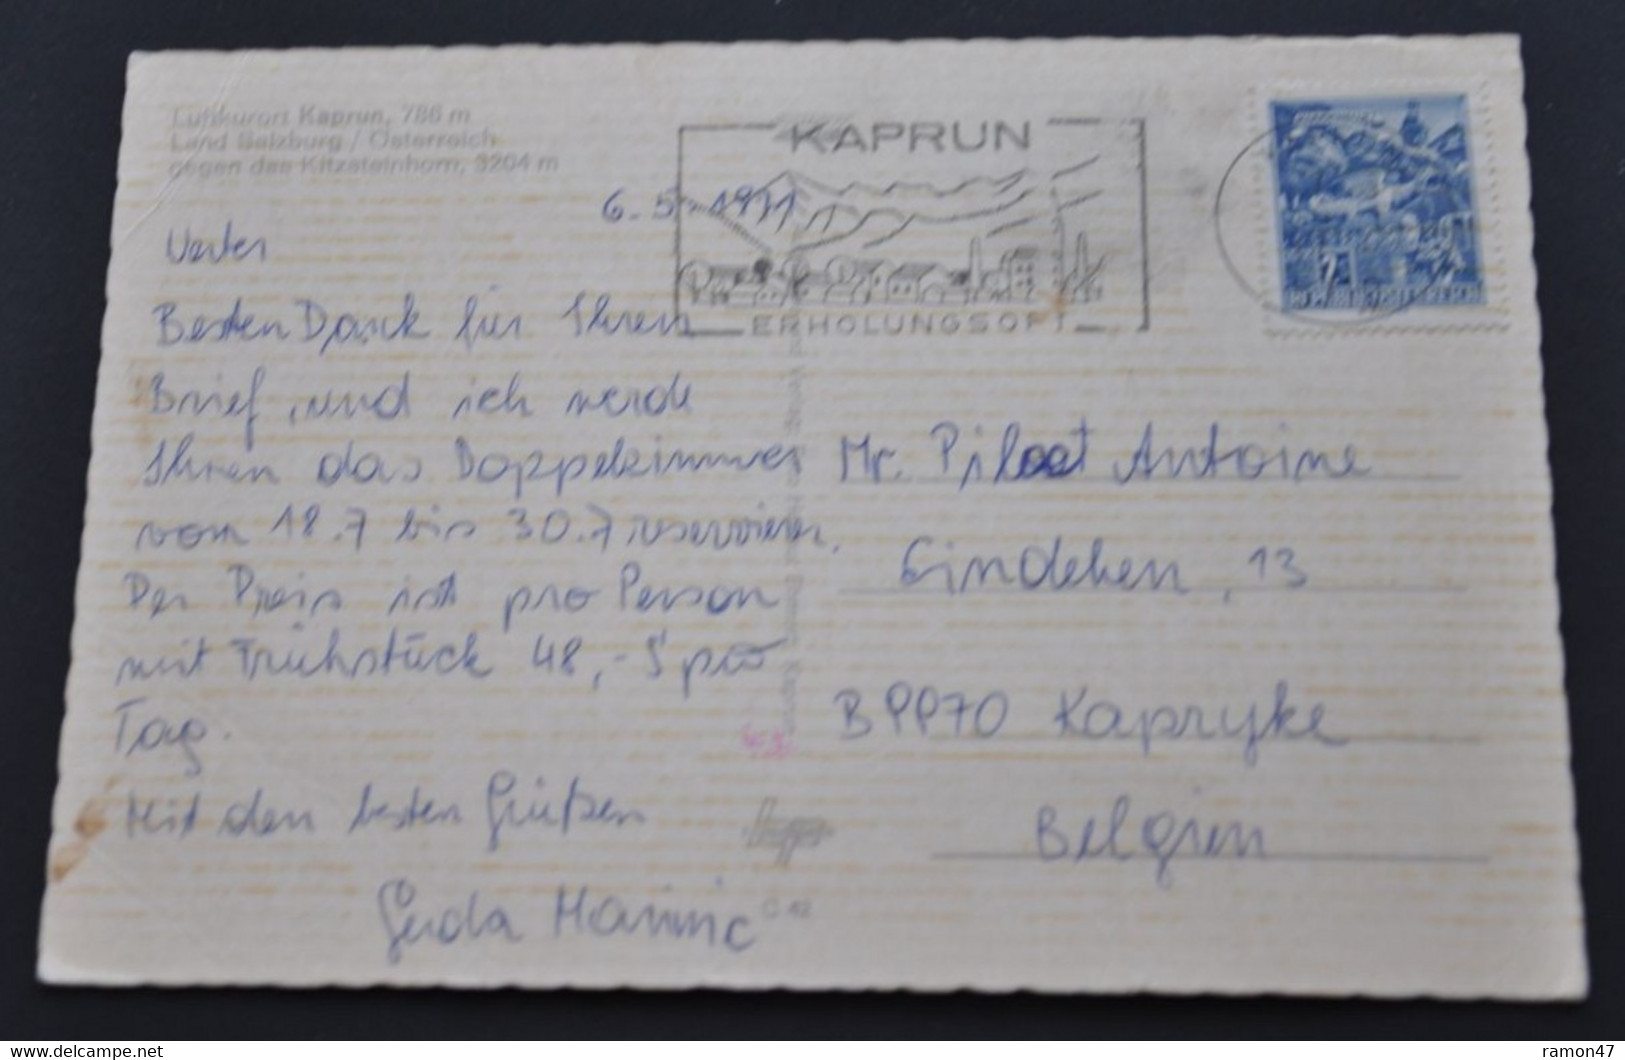 Luftkurort Kaprun, 786 m
Land Salzburg / Österreich
gegen das Kitzsteinhorn, 3204 m
KAPRUN
ERHOLUNGSORT
6. 5. 1971
Besten Dank für Ihren
Brief, und ich werde
Ihnen das Doppelzimmer
vom 18.7 bis 30.7 reservieren.
Der Preis ist pro Person
mit Frühstück 48,- S pro
Tag.
Mit den besten Grüßen
Gerda
Mr. Piloet Antoine
Eindeken, 13
B 9970 Kapryke
Belgien
REPUBLIK ÖSTERREICH
C 42
ramon47
www.delcampe.net